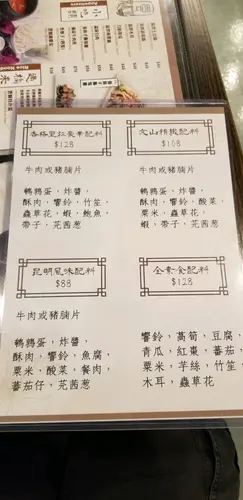 小食類
Appetizers
香格里拉豪華配料
$128
牛肉或豬腩片
鵪鶉蛋，炸醬，
酥肉，響鈴，竹笙，
蟲草花，蝦，鮑魚，
帶子，芫茜葱
文山精緻配料
$108
牛肉或豬腩片
鵪鶉蛋，炸醬，
酥肉，響鈴，酸菜，
粟米，蟲草花，
蝦，帶子，芫茜葱
昆明風味配料
$88
牛肉或豬腩片
鵪鶉蛋，炸醬，
酥肉，響鈴，魚腐，
粟米，酸菜，餐肉，
蕃茄仔，芫茜葱
全素食配料
$128
響鈴，萵筍，豆腐，
青瓜，紅棗，蕃茄，
粟米，芋絲，竹笙，
木耳，蟲草花